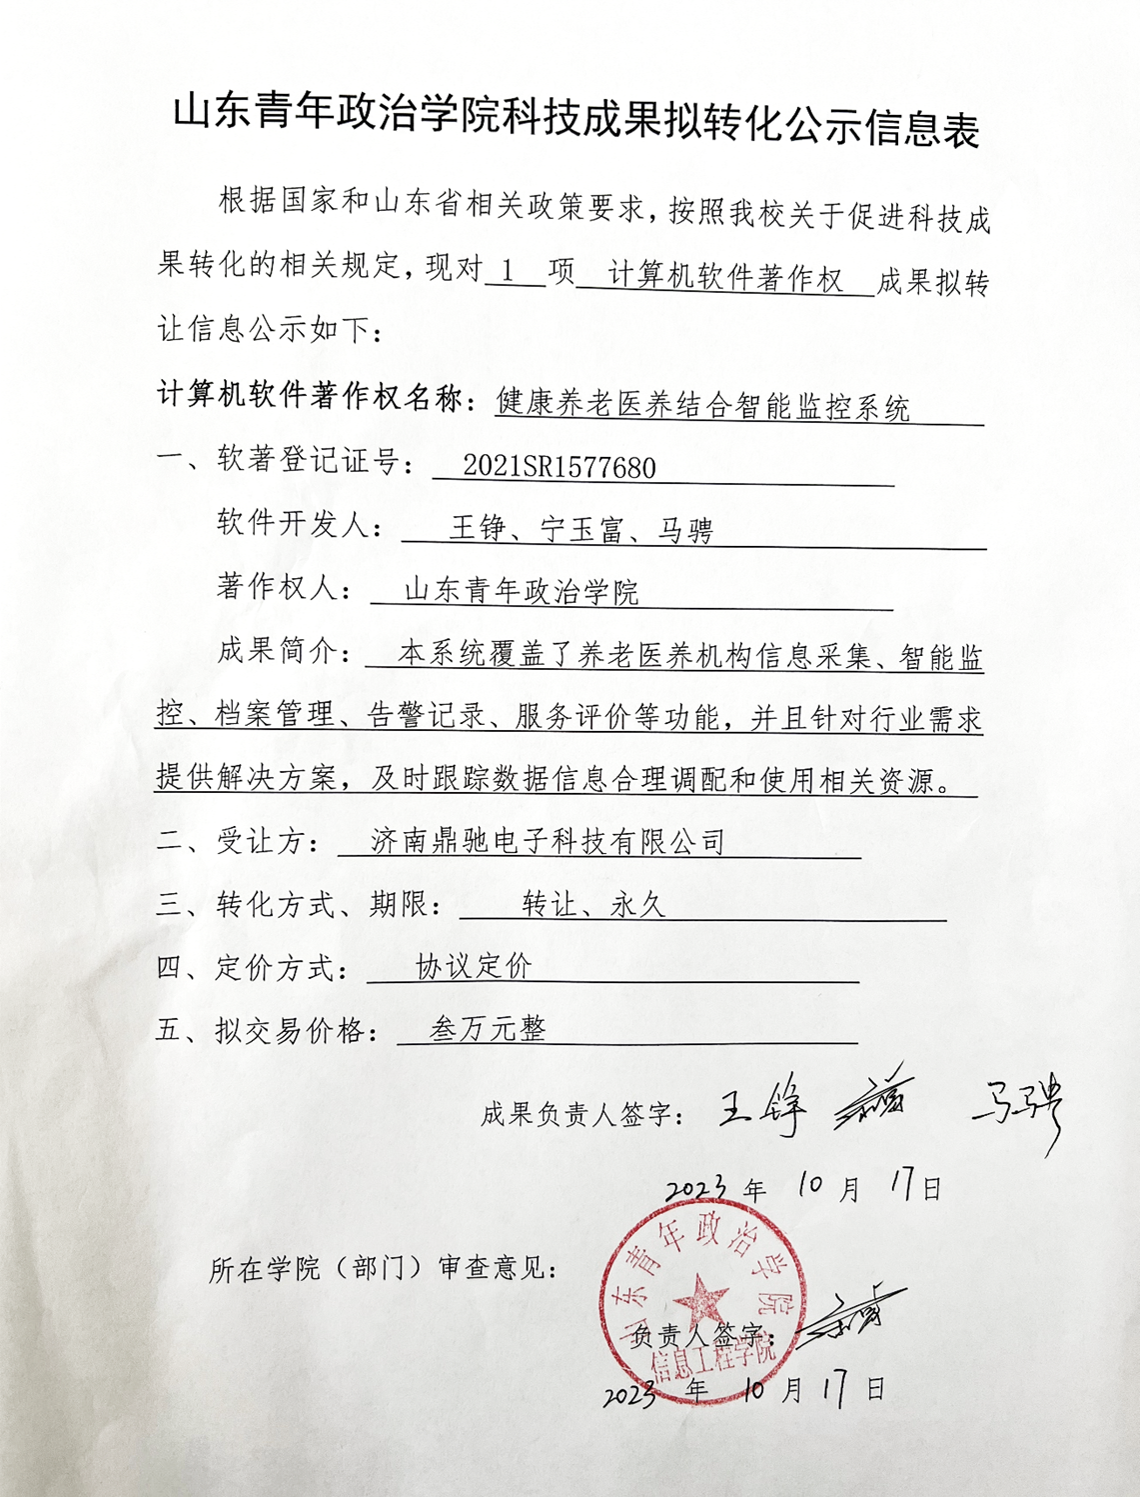 山东青年政治学院科技成果拟转化公示信息表
根据国家和山东省相关政策要求，按照我校关于促进科技成
果转化的相关规定，现对 1 项 计算机软件著作权 成果拟转
让信息公示如下：
计算机软件著作权名称：健康养老医养结合智能监控系统
一、软著登记证号： 2021SR1577680
软件开发人： 王铮、宁玉富、马骋
著作权人： 山东青年政治学院
成果简介： 本系统覆盖了养老医养机构信息采集、智能监
控、档案管理、告警记录、服务评价等功能，并且针对行业需求
提供解决方案，及时跟踪数据信息合理调配和使用相关资源。
二、受让方： 济南鼎驰电子科技有限公司
三、转化方式、期限： 转让、永久
四、定价方式： 协议定价
五、拟交易价格： 叁万元整
成果负责人签字： 王铮 马骋
2023 年 10 月 17 日
所在学院（部门）审查意见：
山东青年政治学院
负责人签字：
信息工程学院
2023 年 10 月 17 日